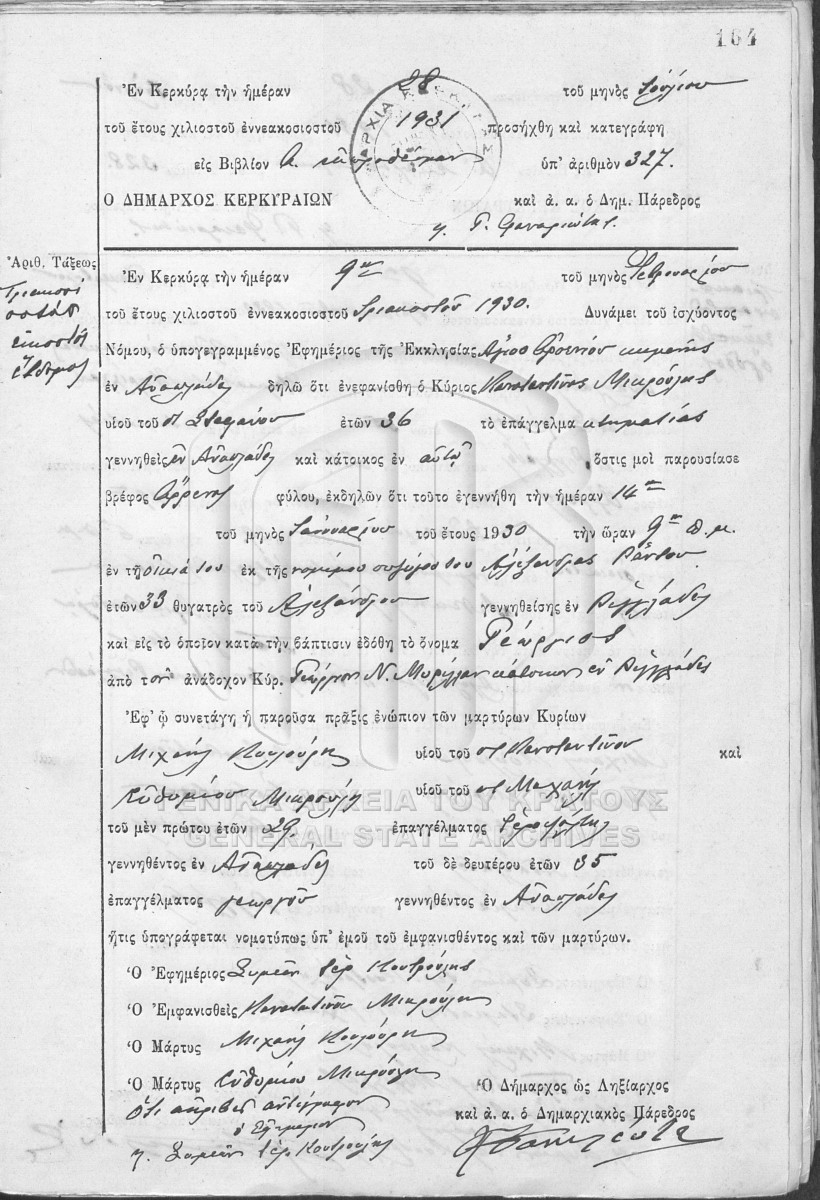 164
Ἐν Κερκύρᾳ τὴν ἡμέραν 28 τοῦ μηνὸς Ἰουλίου
τοῦ ἔτους χιλιοστοῦ ἐννεακοσιοστοῦ 1931 προσήχθη καὶ κατεγράφη
εἰς Βιβλίον Α. ὑπ' ἀριθμὸν 327.
Ο ΔΗΜΑΡΧΟΣ ΚΕΡΚΥΡΑΙΩΝ καὶ ἀ. α. ὁ Δημ. Πάρεδρος
Ἀριθ. Τάξεως
Τριακοσι
οστὸς
εἰκοστὸς
ἕβδομος
Ἐν Κερκύρᾳ τὴν ἡμέραν 9ην τοῦ μηνὸς Φεβρουαρίου
τοῦ ἔτους χιλιοστοῦ ἐννεακοσιοστοῦ τριακοστοῦ 1930. Δυνάμει τοῦ ἰσχύοντος
Νόμου, ὁ ὑπογεγραμμένος Ἐφημέριος τῆς Ἐκκλησίας Ἁγίου Ἀρσενίου
ἐν δηλῶ ὅτι ἐνεφανίσθη ὁ Κύριος Κωνσταντῖνος Μικρούλης
υἱοῦ τοῦ Στεφάνου ἐτῶν 36 τὸ ἐπάγγελμα κτηματίας
γεννηθεὶς ἐν καὶ κάτοικος ἐν αὐτῷ ὅστις μοὶ παρουσίασε
βρέφος ἄρρενος φύλου, ἐκδηλῶν ὅτι τοῦτο ἐγεννήθη τὴν ἡμέραν 14ην
τοῦ μηνὸς Ἰανουαρίου τοῦ ἔτους 1930 τὴν ὥραν 9ην π.μ.
ἐν τῇ οἰκίᾳ του ἐκ τῆς νομίμου συζύγου του Ἀλεξάνδρας
ἐτῶν 33 θυγατρὸς τοῦ Ἀλεξάνδρου γεννηθείσης ἐν Ριγγλάδες
καὶ εἰς τὸ ὁποῖον κατὰ τὴν βάπτισιν ἐδόθη τὸ ὄνομα Γεώργιος
ἀπὸ τὸν ἀνάδοχον Κύρ. Γεώργιον Ν. κάτοικον ἐν Ριγγλάδες
Ἐφ' ᾧ συνετάγη ἡ παροῦσα πρᾶξις ἐνώπιον τῶν μαρτύρων Κυρίων
Μιχαὴλ Κουλούρη υἱοῦ τοῦ Κωνσταντίνου καὶ
Εὐθυμίου Μικρούλη υἱοῦ τοῦ Μιχαὴλ
ΓΕΝΙΚΑ ΑΡΧΕΙΑ ΤΟΥ ΚΡΑΤΟΥΣ
τοῦ μὲν πρώτου ἐτῶν 29 ἐπαγγέλματος ἱεροψάλτης
GENERAL STATE ARCHIVES
γεννηθέντος ἐν τοῦ δὲ δευτέρου ἐτῶν 35
ἐπαγγέλματος γεωργοῦ γεννηθέντος ἐν
ἥτις ὑπογράφεται νομοτύπως ὑπ' ἐμοῦ τοῦ ἐμφανισθέντος καὶ τῶν μαρτύρων.
Ὁ Ἐφημέριος Συμεὼν ἱερ. Κουτρούλης
Ὁ Ἐμφανισθεὶς Κωνσταντῖνος Μικρούλης
Ὁ Μάρτυς Μιχαὴλ Κουλούρης
Ὁ Μάρτυς Εὐθυμίου Μικρούλη
Ὁ Δήμαρχος ὡς Ληξίαρχος
ὅτι ἀκριβὲς ἀντίγραφον
καὶ ἀ. α. ὁ Δημαρχιακὸς Πάρεδρος
ὁ Ἐφημέριος
Συμεὼν ἱερ. Κουτρούλης